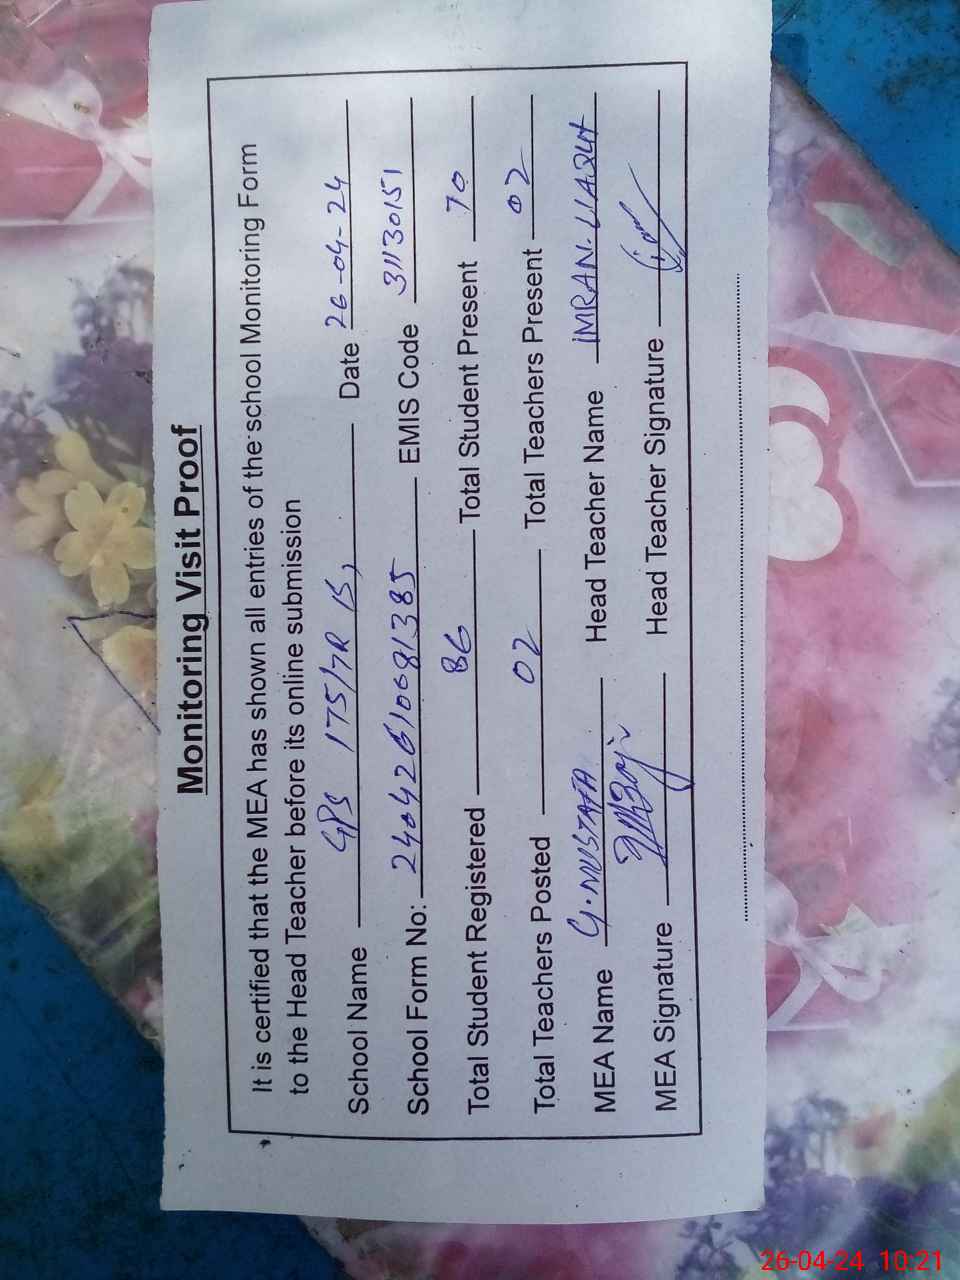 Monitoring Visit Proof
It is certified that the MEA has shown all entries of the school Monitoring Form
to the Head Teacher before its online submission
School Name GPS 175/7R IS, Date 26-04-24
School Form No: 24042610681385 EMIS Code 31130151
Total Student Registered 86 Total Student Present 70
Total Teachers Posted 02 Total Teachers Present 02
MEA Name G. MUSTAFA Head Teacher Name IMRAN. LIAQUT
MEA Signature Head Teacher Signature
26-04-24 10:21